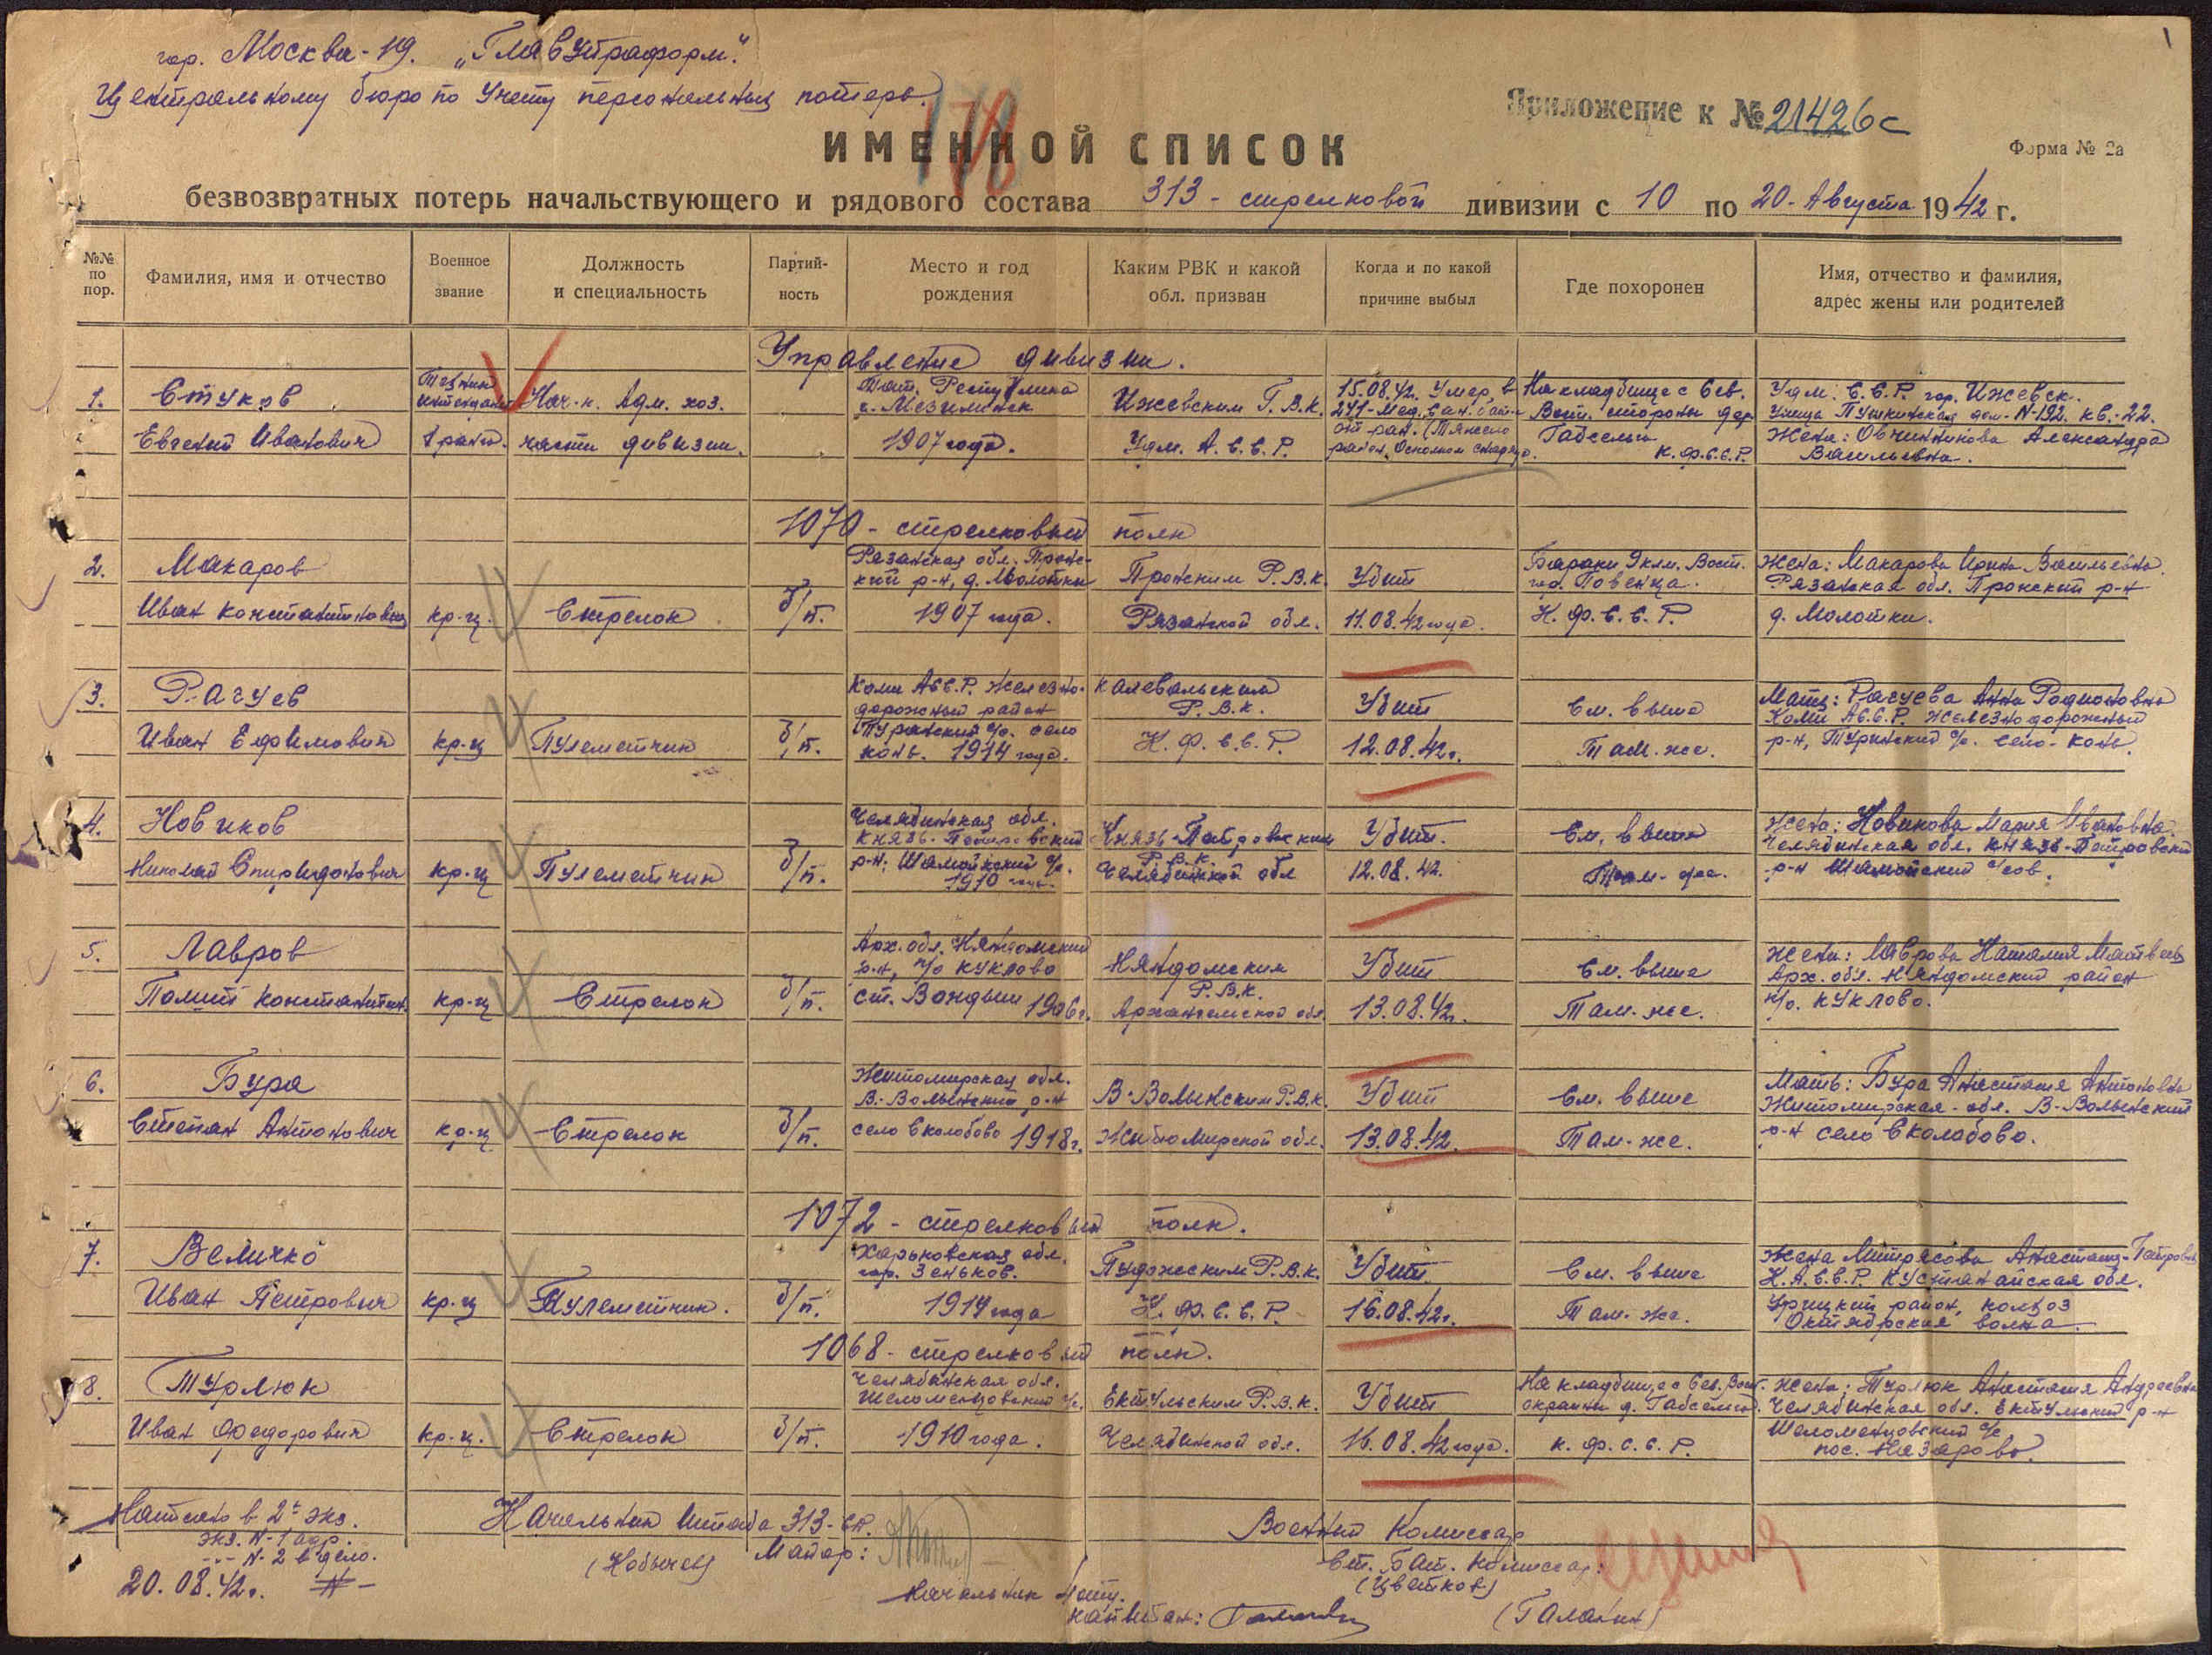 1
гор. Москва - 19. „Главупраформ".
Центральному бюро по учету персональных потерь.
178
Приложение к № 21426с
ИМЕННОЙ СПИСОК
Форма № 2а
безвозвратных потерь начальствующего и рядового состава 313 - стрелковой дивизии с 10 по 20 - Августа 1942 г.
№№ по пор.
Фамилия, имя и отчество
Военное звание
Должность и специальность
Партийность
Место и год рождения
Каким РВК и какой обл. призван
Когда и по какой причине выбыл
Где похоронен
Имя, отчество и фамилия, адрес жены или родителей
Управление дивизии.
1. Стуков Евгений Иванович
Техник интендант 1 ранга.
Нач-к. Адм. хоз. части дивизии.
Тат. Республика
1907 года.
Ижевским Г.В.К. Удм. А.С.С.Р.
15.08.42. Умер в 241-Мед. Сан. бат-е от ран. (Тяжело ранен. Осколком снаряда.
На кладбище с Сев. Вост. стороны дер. Габсельга К.Ф.С.С.Р.
Удм. С.С.Р. гор. Ижевск. Улица Пушкинская дом-N-192. кв.-22.
Жена: Овчинникова Александра Васильевна.
1070 - стрелковый полк
2. Макаров Иван Константинович
кр-ц.
Стрелок
б/п.
Рязанская обл. Пронский р-н, д. Молотки 1907 года.
Пронским Р.В.К. Рязанской обл.
Убит 11.08.42 года.
Бараки 9 клм. Вост. гор. Повенца. К.Ф.С.С.Р.
Жена: Макарова Ирина Васильевна. Рязанская обл. Пронский р-н д. Молотки.
3. Рагуев Иван Ефимович
кр-ц
Пулеметчик
б/п.
Коми АССР. Железнодорожный район Туринский с/с. село конь. 1914 года.
Калевальским Р.В.К. К.Ф.С.С.Р.
Убит 12.08.42г.
См. выше Там-же.
Мать: Рагуева Анна Родионовна Коми А.С.С.Р. Железнодорожный р-н, Туринский с/с. село-конь.
4. Новиков Николай Спиридонович
кр-ц
Пулеметчик
б/п.
Челябинская обл. Князь-Петровский р-н; 1910 года.
Р.В.К. Челябинской обл
Убит. 12.08.42.
См. выше Там-же.
Жена: Новикова Мария Ивановна. Челябинская обл. Князь-Петровский р-н
5. Лавров Полит Константин.
кр-ц
Стрелок
б/п.
Арх. обл. Няндомский р-н, п/о Куклово ст. Вандыш 1906г.
Няндомским Р.В.К. Архангельской обл
Убит 13.08.42г.
См. выше Там-же.
Жена: Лаврова Наталия Матвеев Арх. обл. Няндомский район п/о. Куклово.
6. Бура Степан Антонович
кр-ц
Стрелок
б/п.
Житомирская обл. В.-Волынский р-н село Сколобово 1918г.
В-Волынским Р.В.К. Житомирской обл.
Убит 13.08.42.
См. выше Там-же.
Мать: Бура Анастасия Антоновна Житомирская-обл. В-Волынский р-н село Сколобово.
1072 - стрелковый полк.
7. Величко Иван Петрович
кр-ц
Пулеметчик.
б/п.
Харьковская обл. гор. Зеньков. 1914 года
Пудожским Р.В.К. К.Ф.С.С.Р.
Убит. 16.08.42г.
См. выше Там-же.
Жена Анастасия Петровна К.А.С.С.Р. Кустанайская обл. Урицкий район, колхоз Октябрьская волна.
1068 - стрелковый полк.
8. Турлюк Иван Федорович
кр-ц.
Стрелок
б/п.
Челябинская обл. Шеломенцовский с/с. 1910 года.
Ектульским Р.В.К. Челябинской обл.
Убит 16.08.42 года.
На кладбище Сев. Вост. окраины д. Габсельга. К.Ф.С.С.Р.
Жена: Турлюк Анастасия Андреевна Челябинская обл. Ектульский р-н Шеломенцовский с/с пос. Назарово.
Написано в 2х экз.
экз. N-1 адр.
-"- N-2 в дело.
20.08.42г.
Начальник Штаба 313-СД.
Майор:
(Кобычев)
Военный Комиссар
Ст. Бат. Комиссар:
(Цветков)
Начальник 4 отд.
Капитан:
(Галакин)